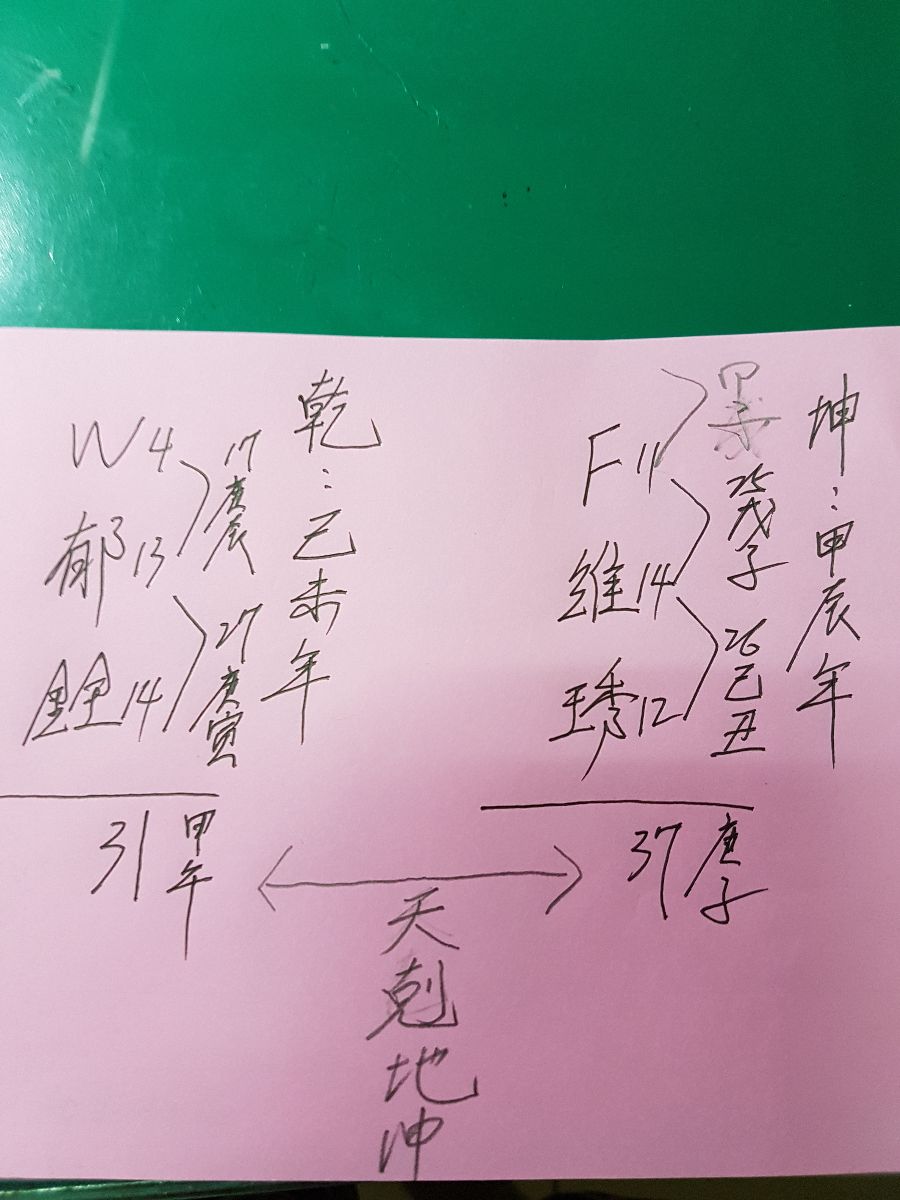 乾：己未年
W 4
郁 13
17 庚辰
14
27 庚寅
31 甲午
坤：甲辰年
F 11
維 14
琇 12
25 戊子
26 己丑
37 庚子
天剋地沖